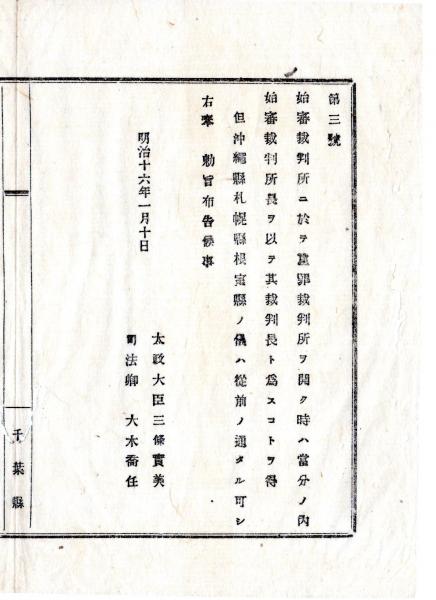 第三號
始審裁判所ニ於テ重罪裁判所ヲ開ク時ハ當分ノ內
始審裁判所長ヲ以テ其裁判長ト爲スコトヲ得
但沖繩縣札幌縣根室縣ノ儀ハ從前ノ通タル可シ
右奉 勅旨布告候事
明治十六年一月十日
太政大臣三條實美
司法卿 大木喬任
千葉縣